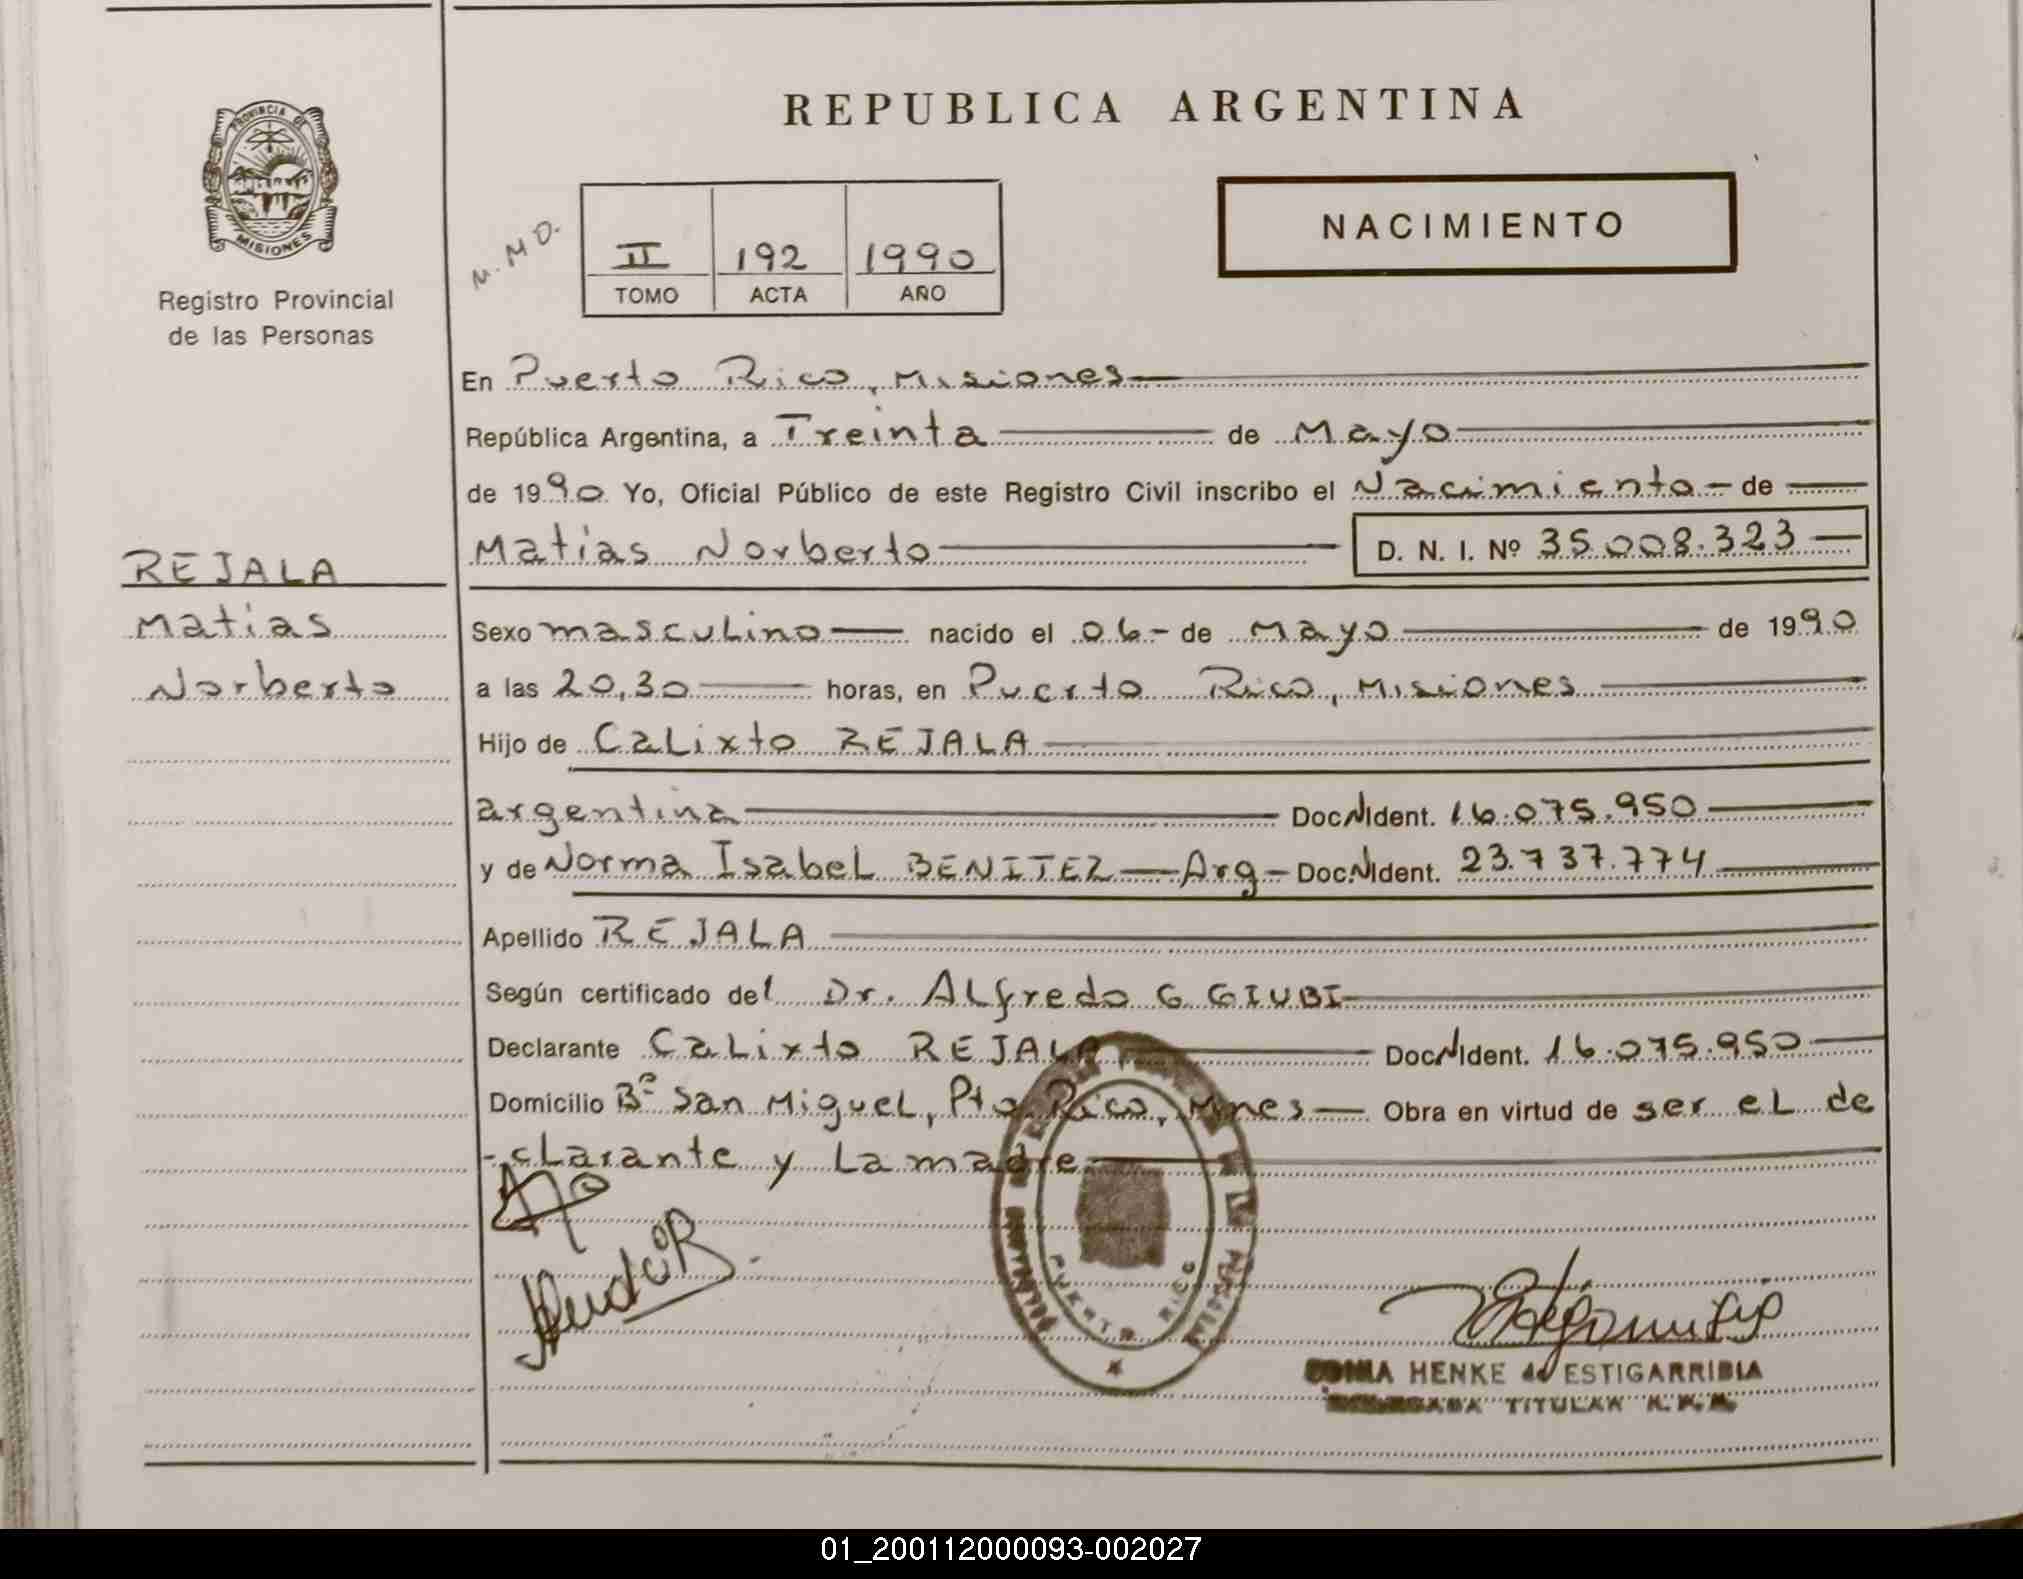 REPUBLICA ARGENTINA
PROVINCIA DE MISIONES
Registro Provincial
de las Personas
M. M O.
II 192 1990
TOMO ACTA AÑO
NACIMIENTO
En Puerto Rico, Misiones
República Argentina, a Treinta de Mayo
de 1990 Yo, Oficial Público de este Registro Civil inscribo el Nacimiento - de
Matias Norberto D. N. I. Nº 35.008.323
REJALA
Matias
Norberto
Sexo masculino nacido el 06 - de Mayo de 1990
a las 20,30 horas, en Puerto Rico, Misiones
Hijo de Calixto REJALA
argentina Doc.N.Ident. 16.075.950
y de Norma Isabel BENITEZ - Arg - Doc.N.Ident. 23.737.774
Apellido REJALA
Según certificado del Dr. Alfredo G GIUBI
Declarante Calixto REJALA Doc.N.Ident. 16.075.950
Domicilio Bº San Miguel, Pto Rico, Mnes - Obra en virtud de ser el de
-clarante y la madre
PUERTO RICO
SONIA HENKE de ESTIGARRIBIA
TITULAR
01_200112000093-002027